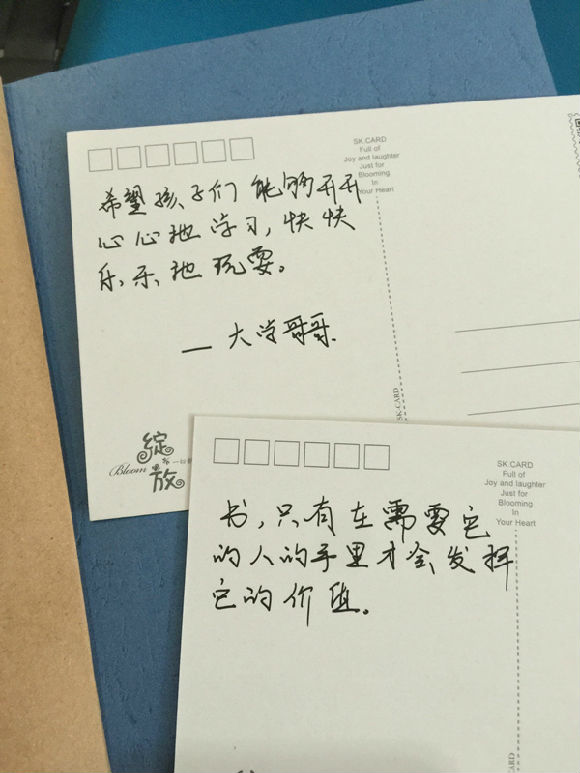 SK.CARD
Full of
Joy and laughter
Just for
Blooming
In
Your Heart
希望孩子们能够开开
心心地学习,快快
乐乐地玩耍。
— 大学哥哥
SK.CARD
绽放
Bloom
SK.CARD
Full of
Joy and laughter
Just for
Blooming
In
Your Heart
书,只有在需要它
的人的手里才会发挥
它的价值。